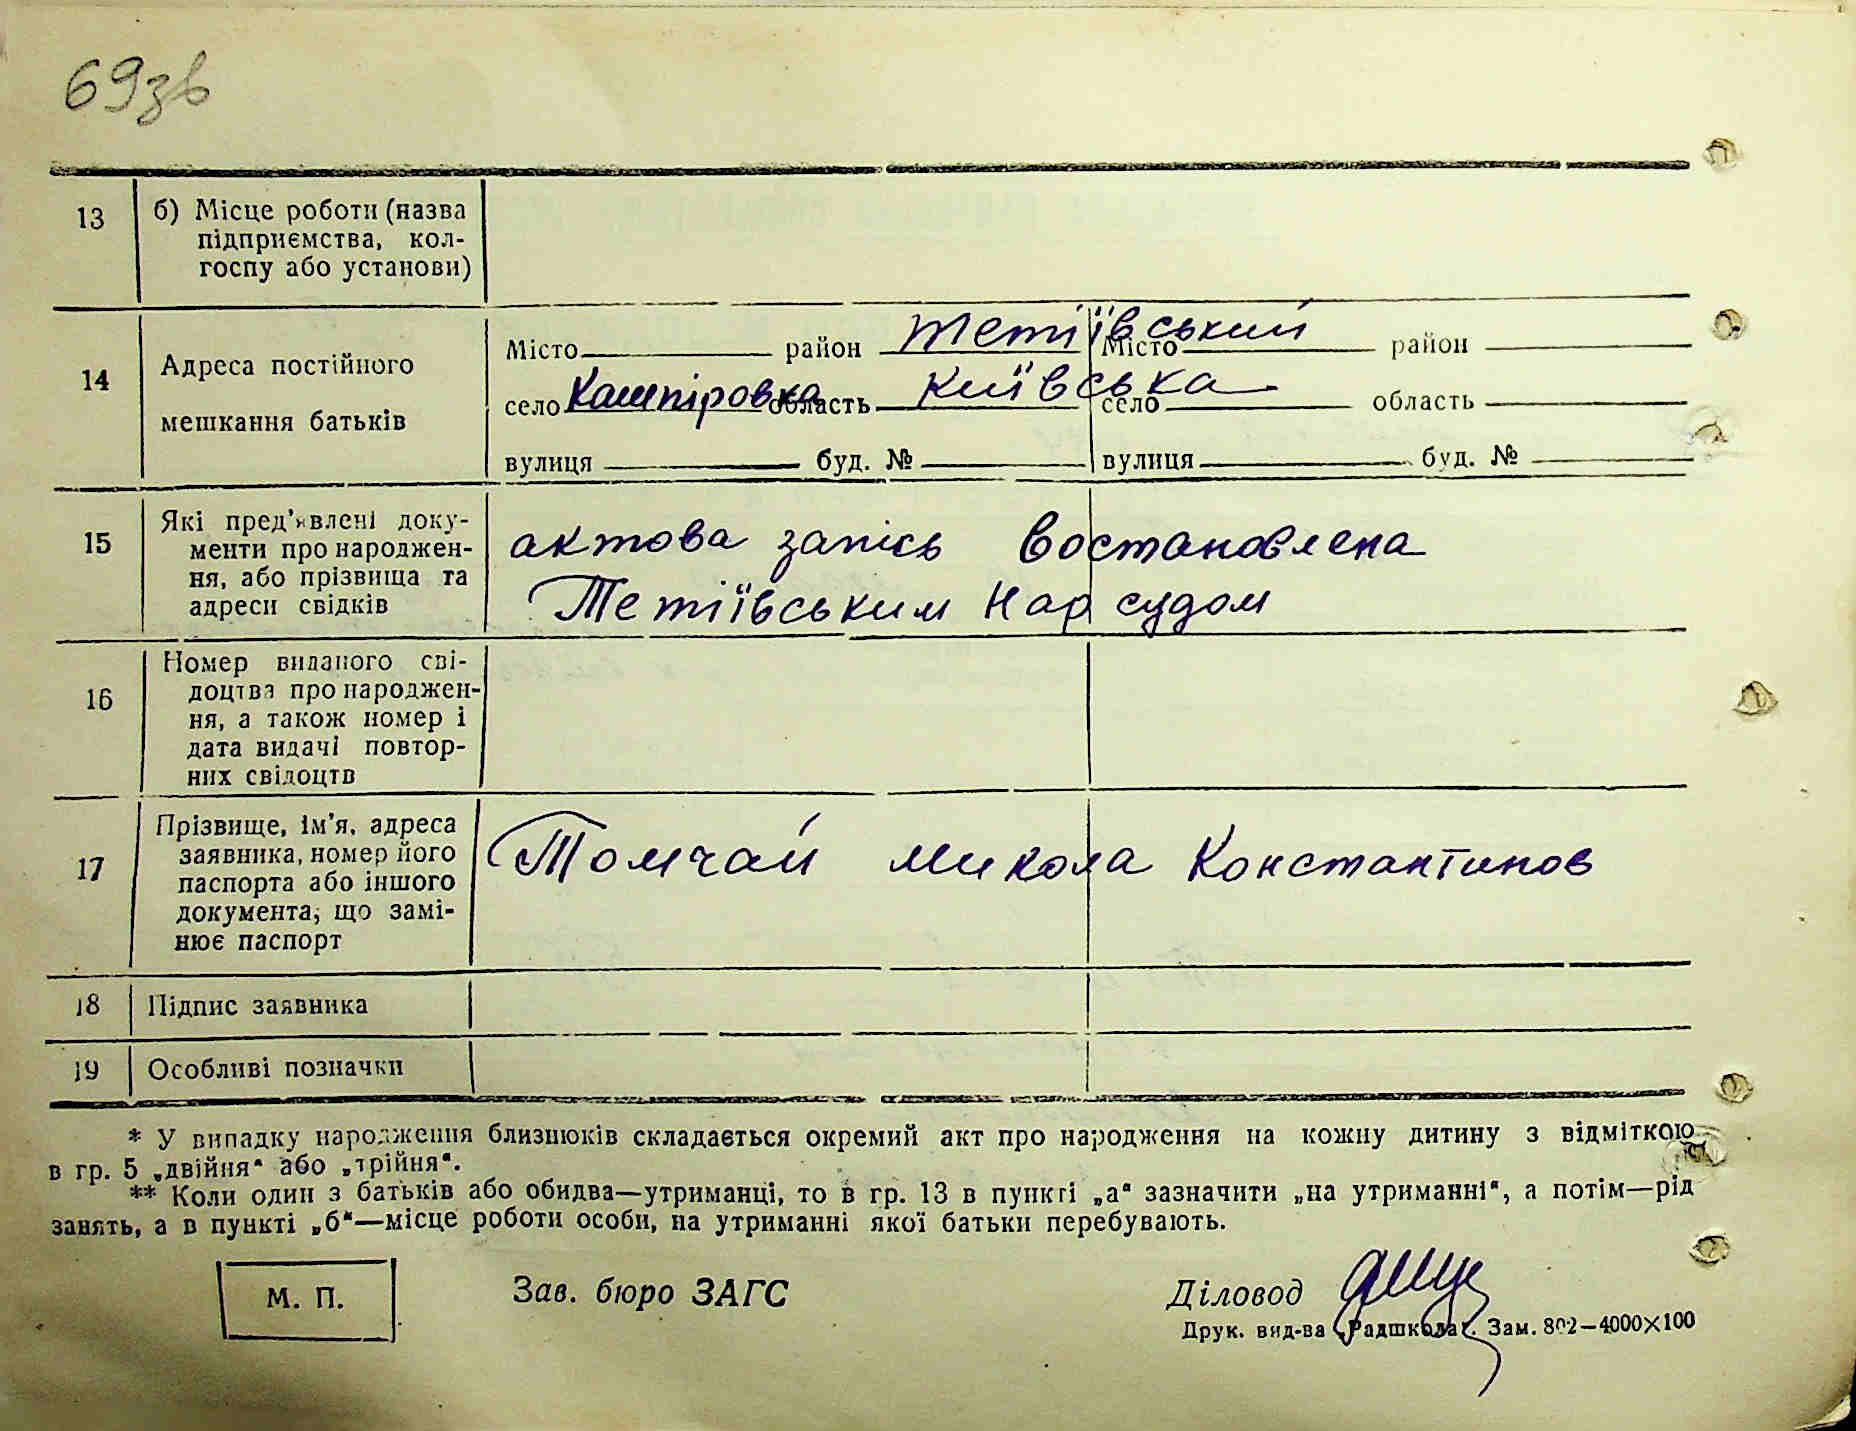 69зв
13
б) Місце роботи (назва
підприємства, кол-
госпу або установи)
14
Адреса постійного
мешкання батьків
Місто район Тетіївський
село Кашпіровка область Київська
вулиця буд. №
Місто район
село область
вулиця буд. №
15
Які пред'явлені доку-
менти про народжен-
ня, або прізвища та
адреси свідків
актова запісь востановлена
Тетіївським Нар судом
16
Номер виданого сві-
доцтва про народжен-
ня, а також номер і
дата видачі повтор-
них свідоцтв
17
Прізвище, ім'я, адреса
заявника, номер його
паспорта або іншого
документа, що замі-
нює паспорт
Томчай Микола Константинов
18
Підпис заявника
19
Особливі позначки
* У випадку народження близнюків складається окремий акт про народження на кожну дитину з відміткою
в гр. 5 „двійня“ або „трійня“.
** Коли один з батьків або обидва—утриманці, то в гр. 13 в пункті „а“ зазначити „на утриманні“, а потім—рід
занять, а в пункті „б“—місце роботи особи, на утриманні якої батьки перебувають.
М. П.
Зав. бюро ЗАГС
Діловод
Друк. вид-ва „Радшкола“. Зам. 802—4000×100